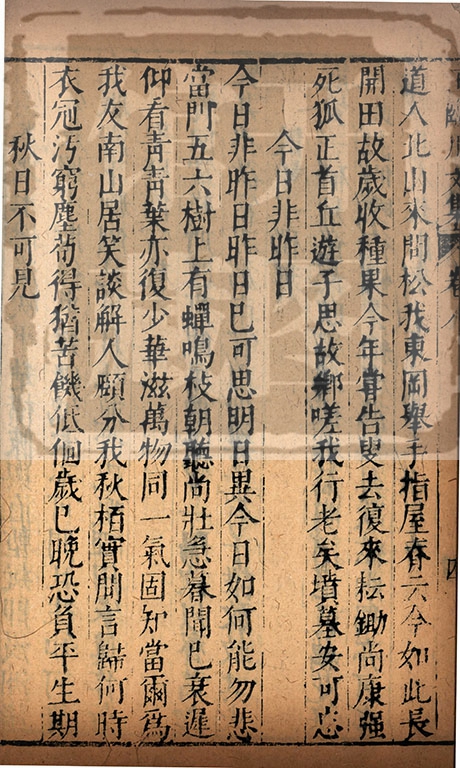 道人北山來問松我東岡舉手指屋脊云今如此長
開田故歲收種果今年甞告叟去復來耘鋤尚康强
死狐正首丘遊子思故鄉嗟我行老矣墳墓安可忘
今日非昨日
今日非昨日昨日巳可思明日異今日如何能勿悲
當門五六樹上有蟬鳴枝朝聽尚壯急暮聞巳衰遲
仰看青青葉亦復少華滋萬物同一氣固知當爾爲
我友南山居笑談解人頤分我秋栢實問言歸何時
衣冠汚窮塵苟得猶苦饑低佪歲巳晚恐負平生期
秋日不可見